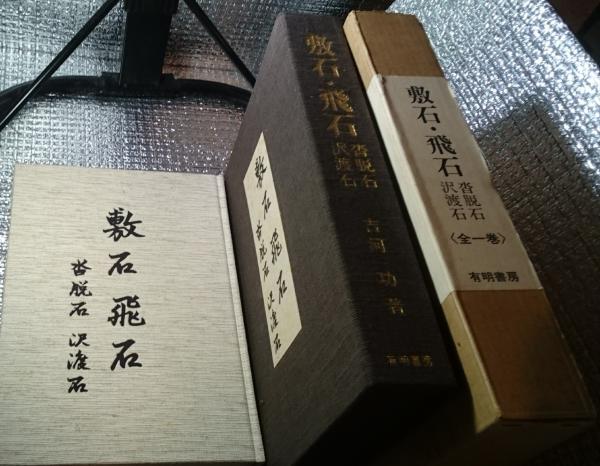 敷石 飛石
沓脱石 沢渡石
敷石 飛石
沓脱石 沢渡石
敷石・飛石
沓脱石
沢渡石
吉河 功 著
有明書房
敷石・飛石
沓脱石
沢渡石
〈全一巻〉
有明書房